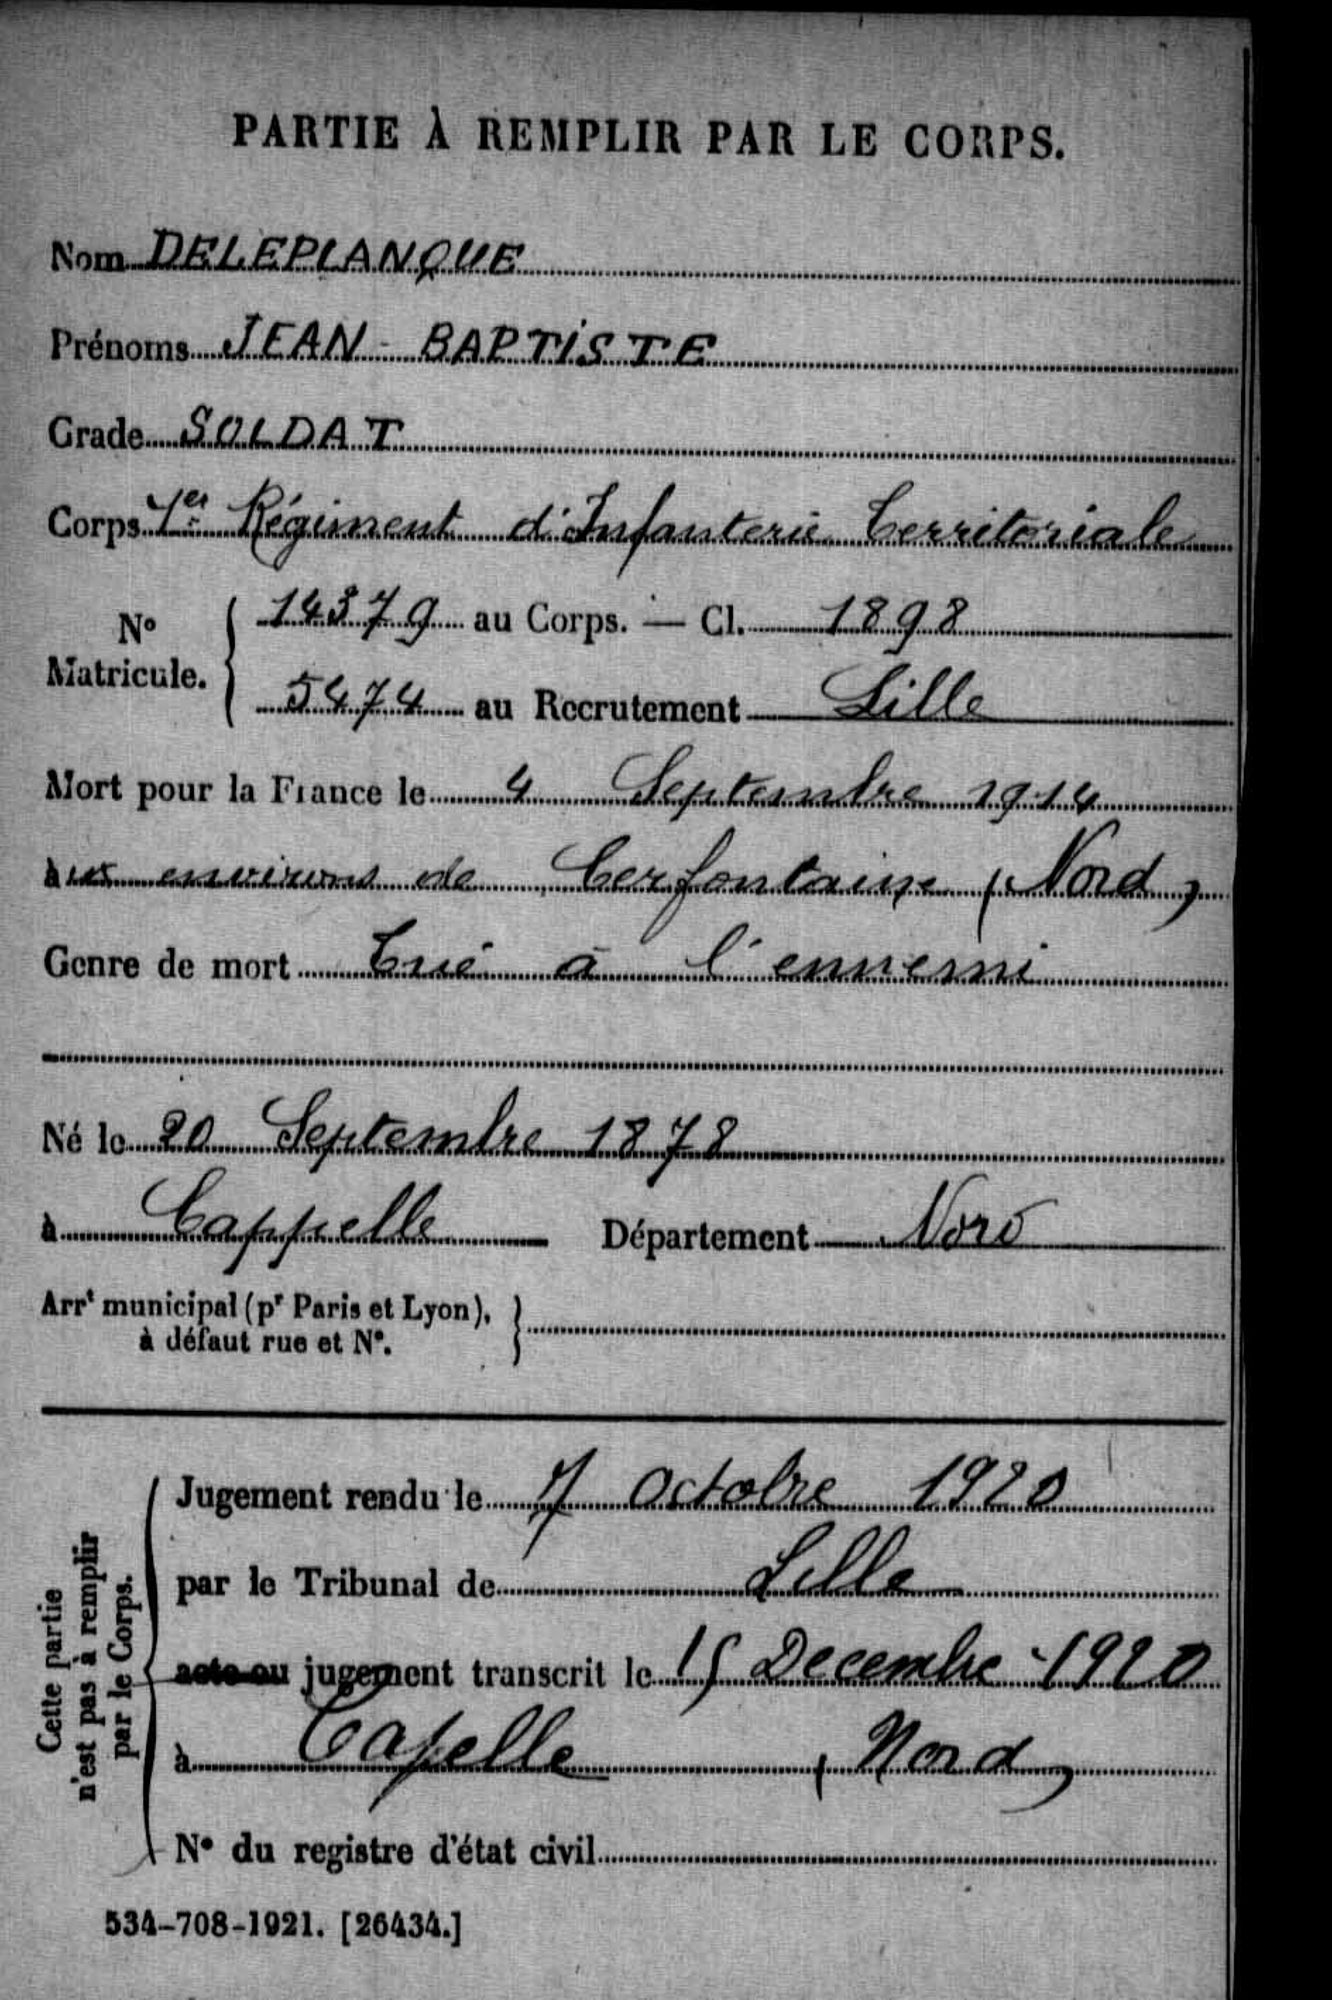 PARTIE À REMPLIR PAR LE CORPS.
Nom DELEPLANQUE
Prénoms JEAN - BAPTISTE
Grade SOLDAT
Corps 1er Régiment d'Infanterie Territoriale
N° Matricule. { 14379 au Corps. — Cl. 1898
5474 au Recrutement Lille
Mort pour la France le 4 Septembre 1914
aux environs de Cerfontaine (Nord)
Genre de mort Tué à l'ennemi
Né le 20 Septembre 1878
à Cappelle Département Nord
Arrt municipal (pr Paris et Lyon), à défaut rue et N°. }
Cette partie n'est pas à remplir par le Corps.
Jugement rendu le 7 Octobre 1920
par le Tribunal de Lille
acte ou jugement transcrit le 15 Decembre 1920
à Capelle (Nord)
N° du registre d'état civil
534-708-1921. [26434.]